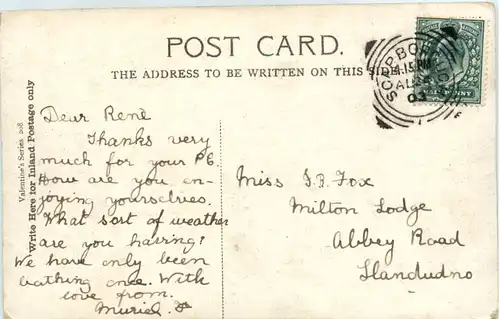 POST CARD.
THE ADDRESS TO BE WRITTEN ON THIS SIDE
Valentine's Series 208
Write Here for Inland Postage only
Dear Renè
Thanks very
much for your P.C.
How are you en-
joying yourselves.
What sort of weather
are you having?
We have only been
bathing once. With
love from.
Muriel.
Miss I. R. Fox
Milton Lodge
Abbey Road
Llandudno
4.15 PM
AU
03